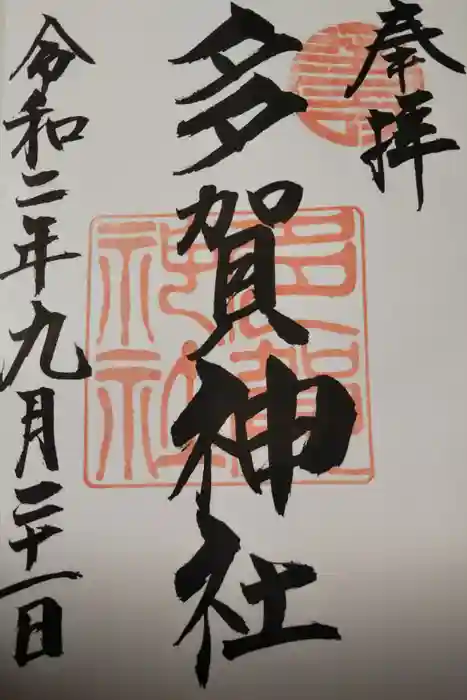 奉拝
多賀神社
多賀神社
令和二年九月二十一日